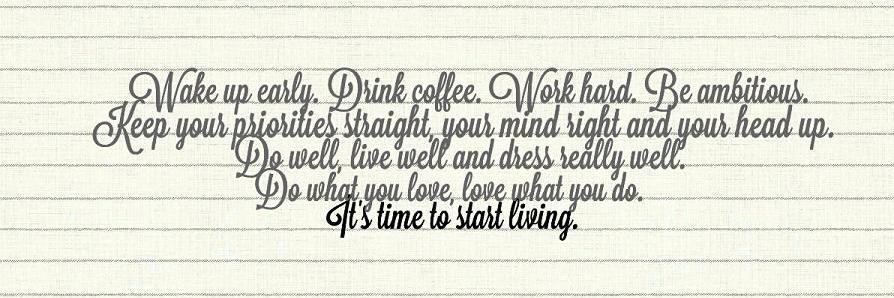 Wake up early. Drink coffee. Work hard. Be ambitious.
Keep your priorities straight, your mind right and your head up.
Do well, live well and dress really well.
Do what you love, love what you do.
It's time to start living.